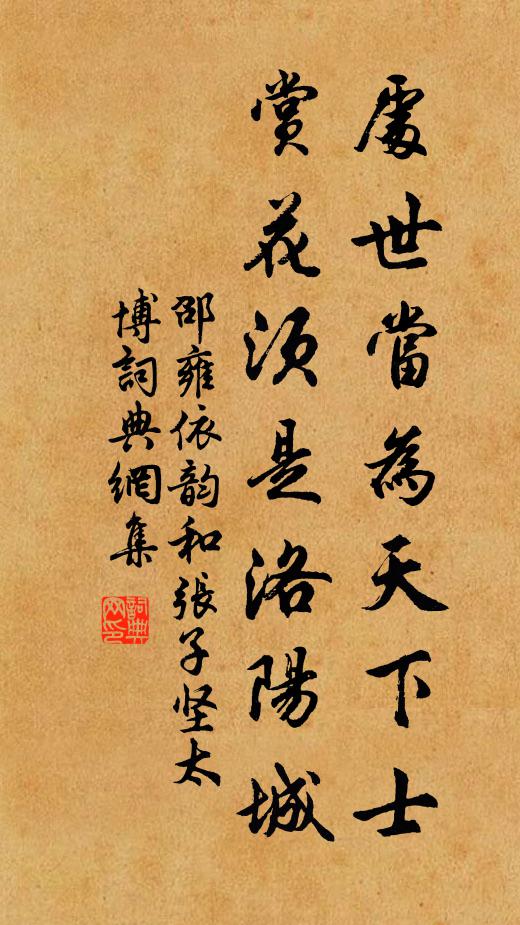 處世當為天下士
賞花須是洛陽城
邵雍依韵和張子坚太
博詞典網集
詞典
网印